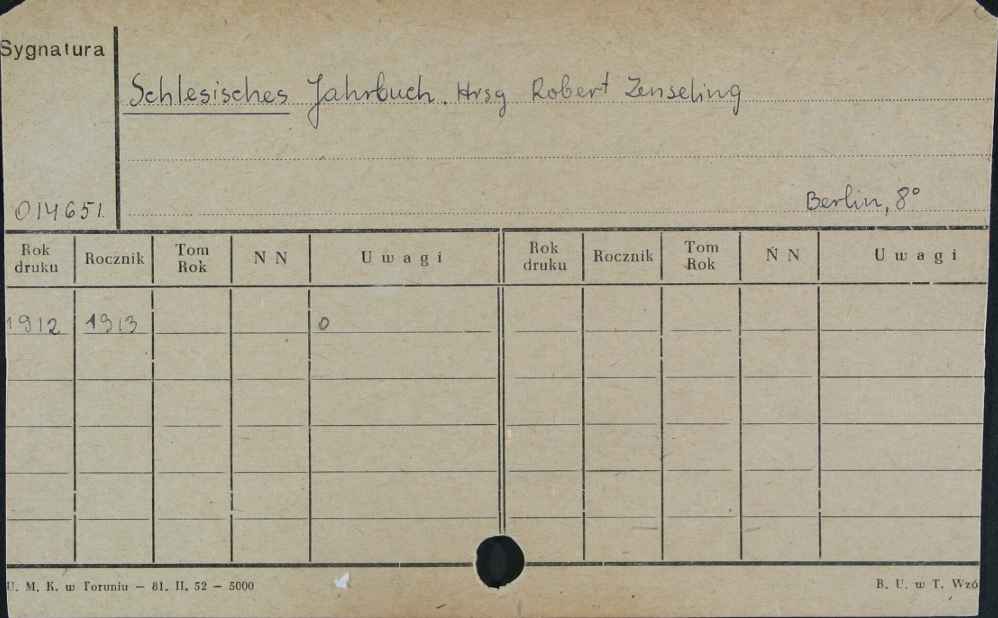 Sygnatura
Schlesisches Jahrbuch. Hrsg Robert Zenseling
014651
Berlin, 8°
Rok druku Rocznik Tom Rok N N Uwagi Rok druku Rocznik Tom Rok N N Uwagi
1912 1913 0
U. M. K. w Toruniu — 81. II. 52 — 5000 B. U. w T. Wzó